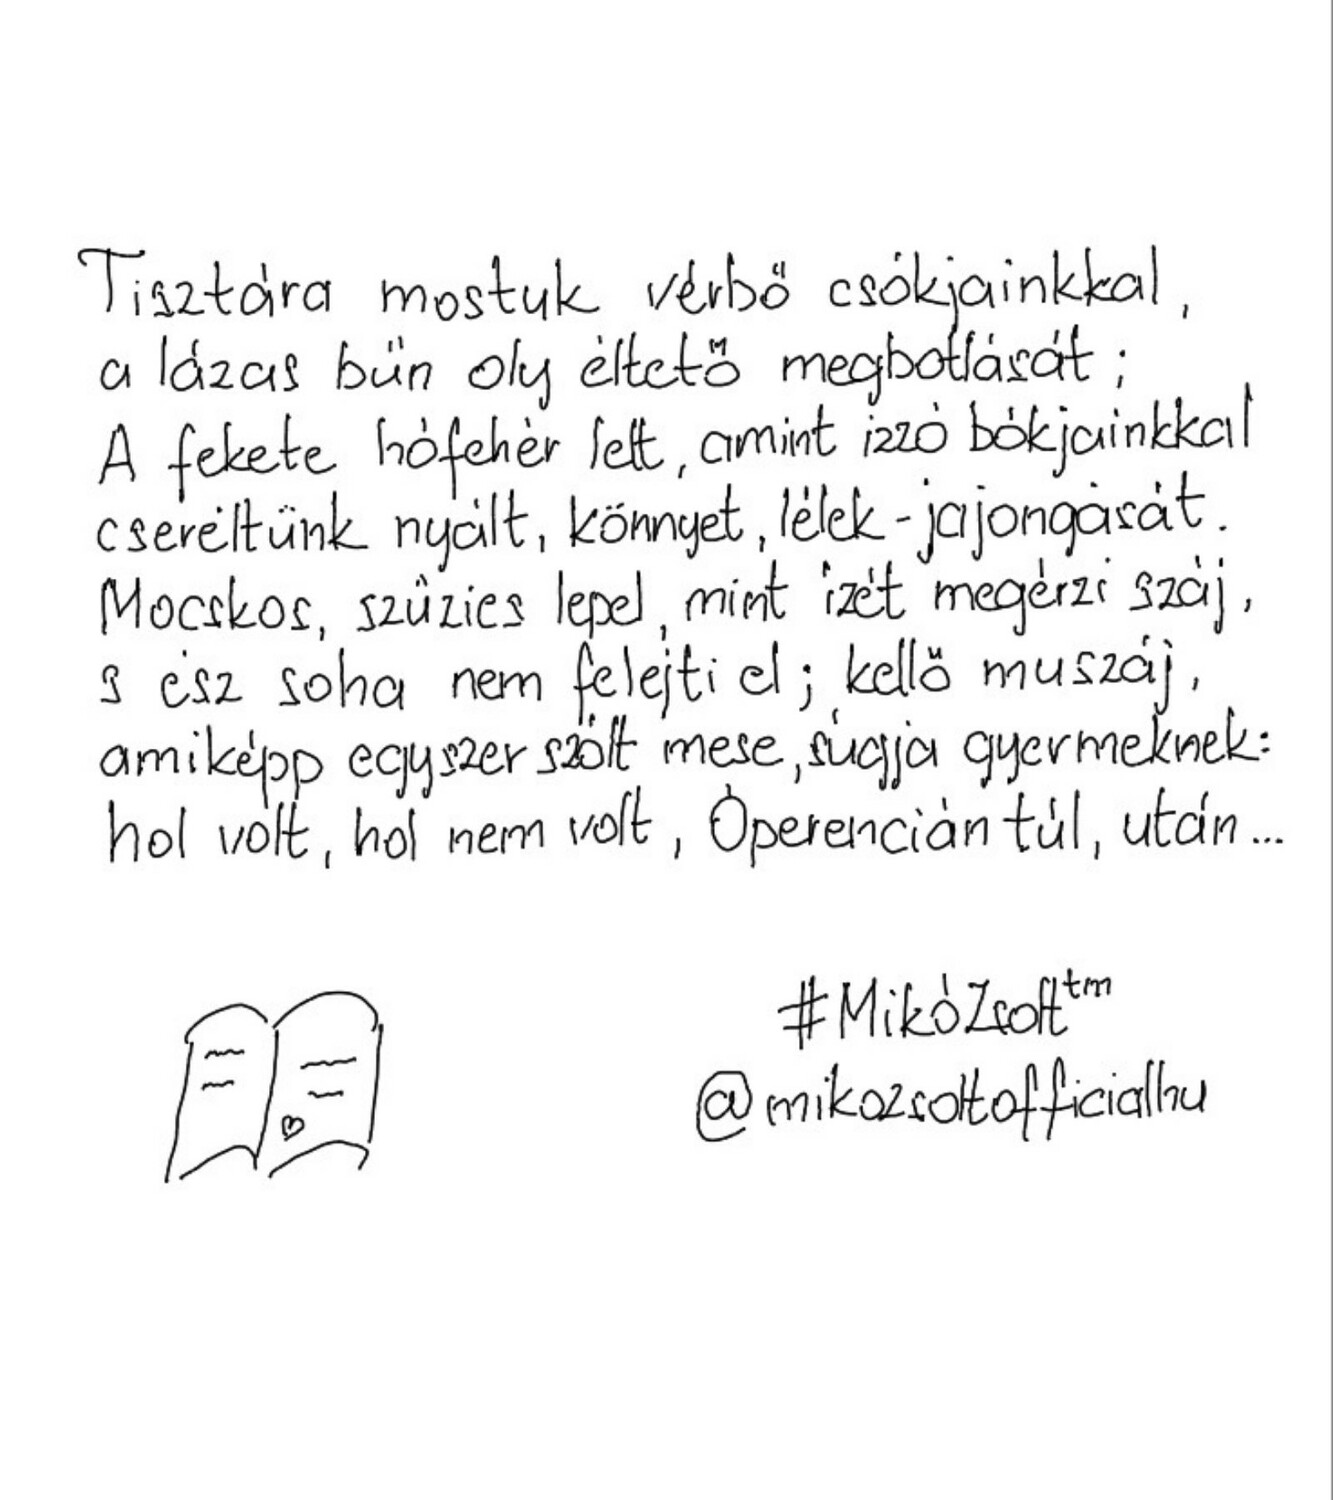 Tisztára mostuk vérbő csókjainkkal,
a lázas bűn oly éltető megbotlását;
A fekete hófehér lett, amint izzó bókjainkkal
cseréltünk nyált, könnyet, lélek-jajongását.
Mocskos, szűzies lepel, mint ízét megérzi száj,
s ész soha nem felejti el; kellő muszáj,
amiképp egyszer szólt mese, súgja gyermeknek:
hol volt, hol nem volt, Óperencián túl, után...
#MikóZsolt™
@mikozsoltofficialhu